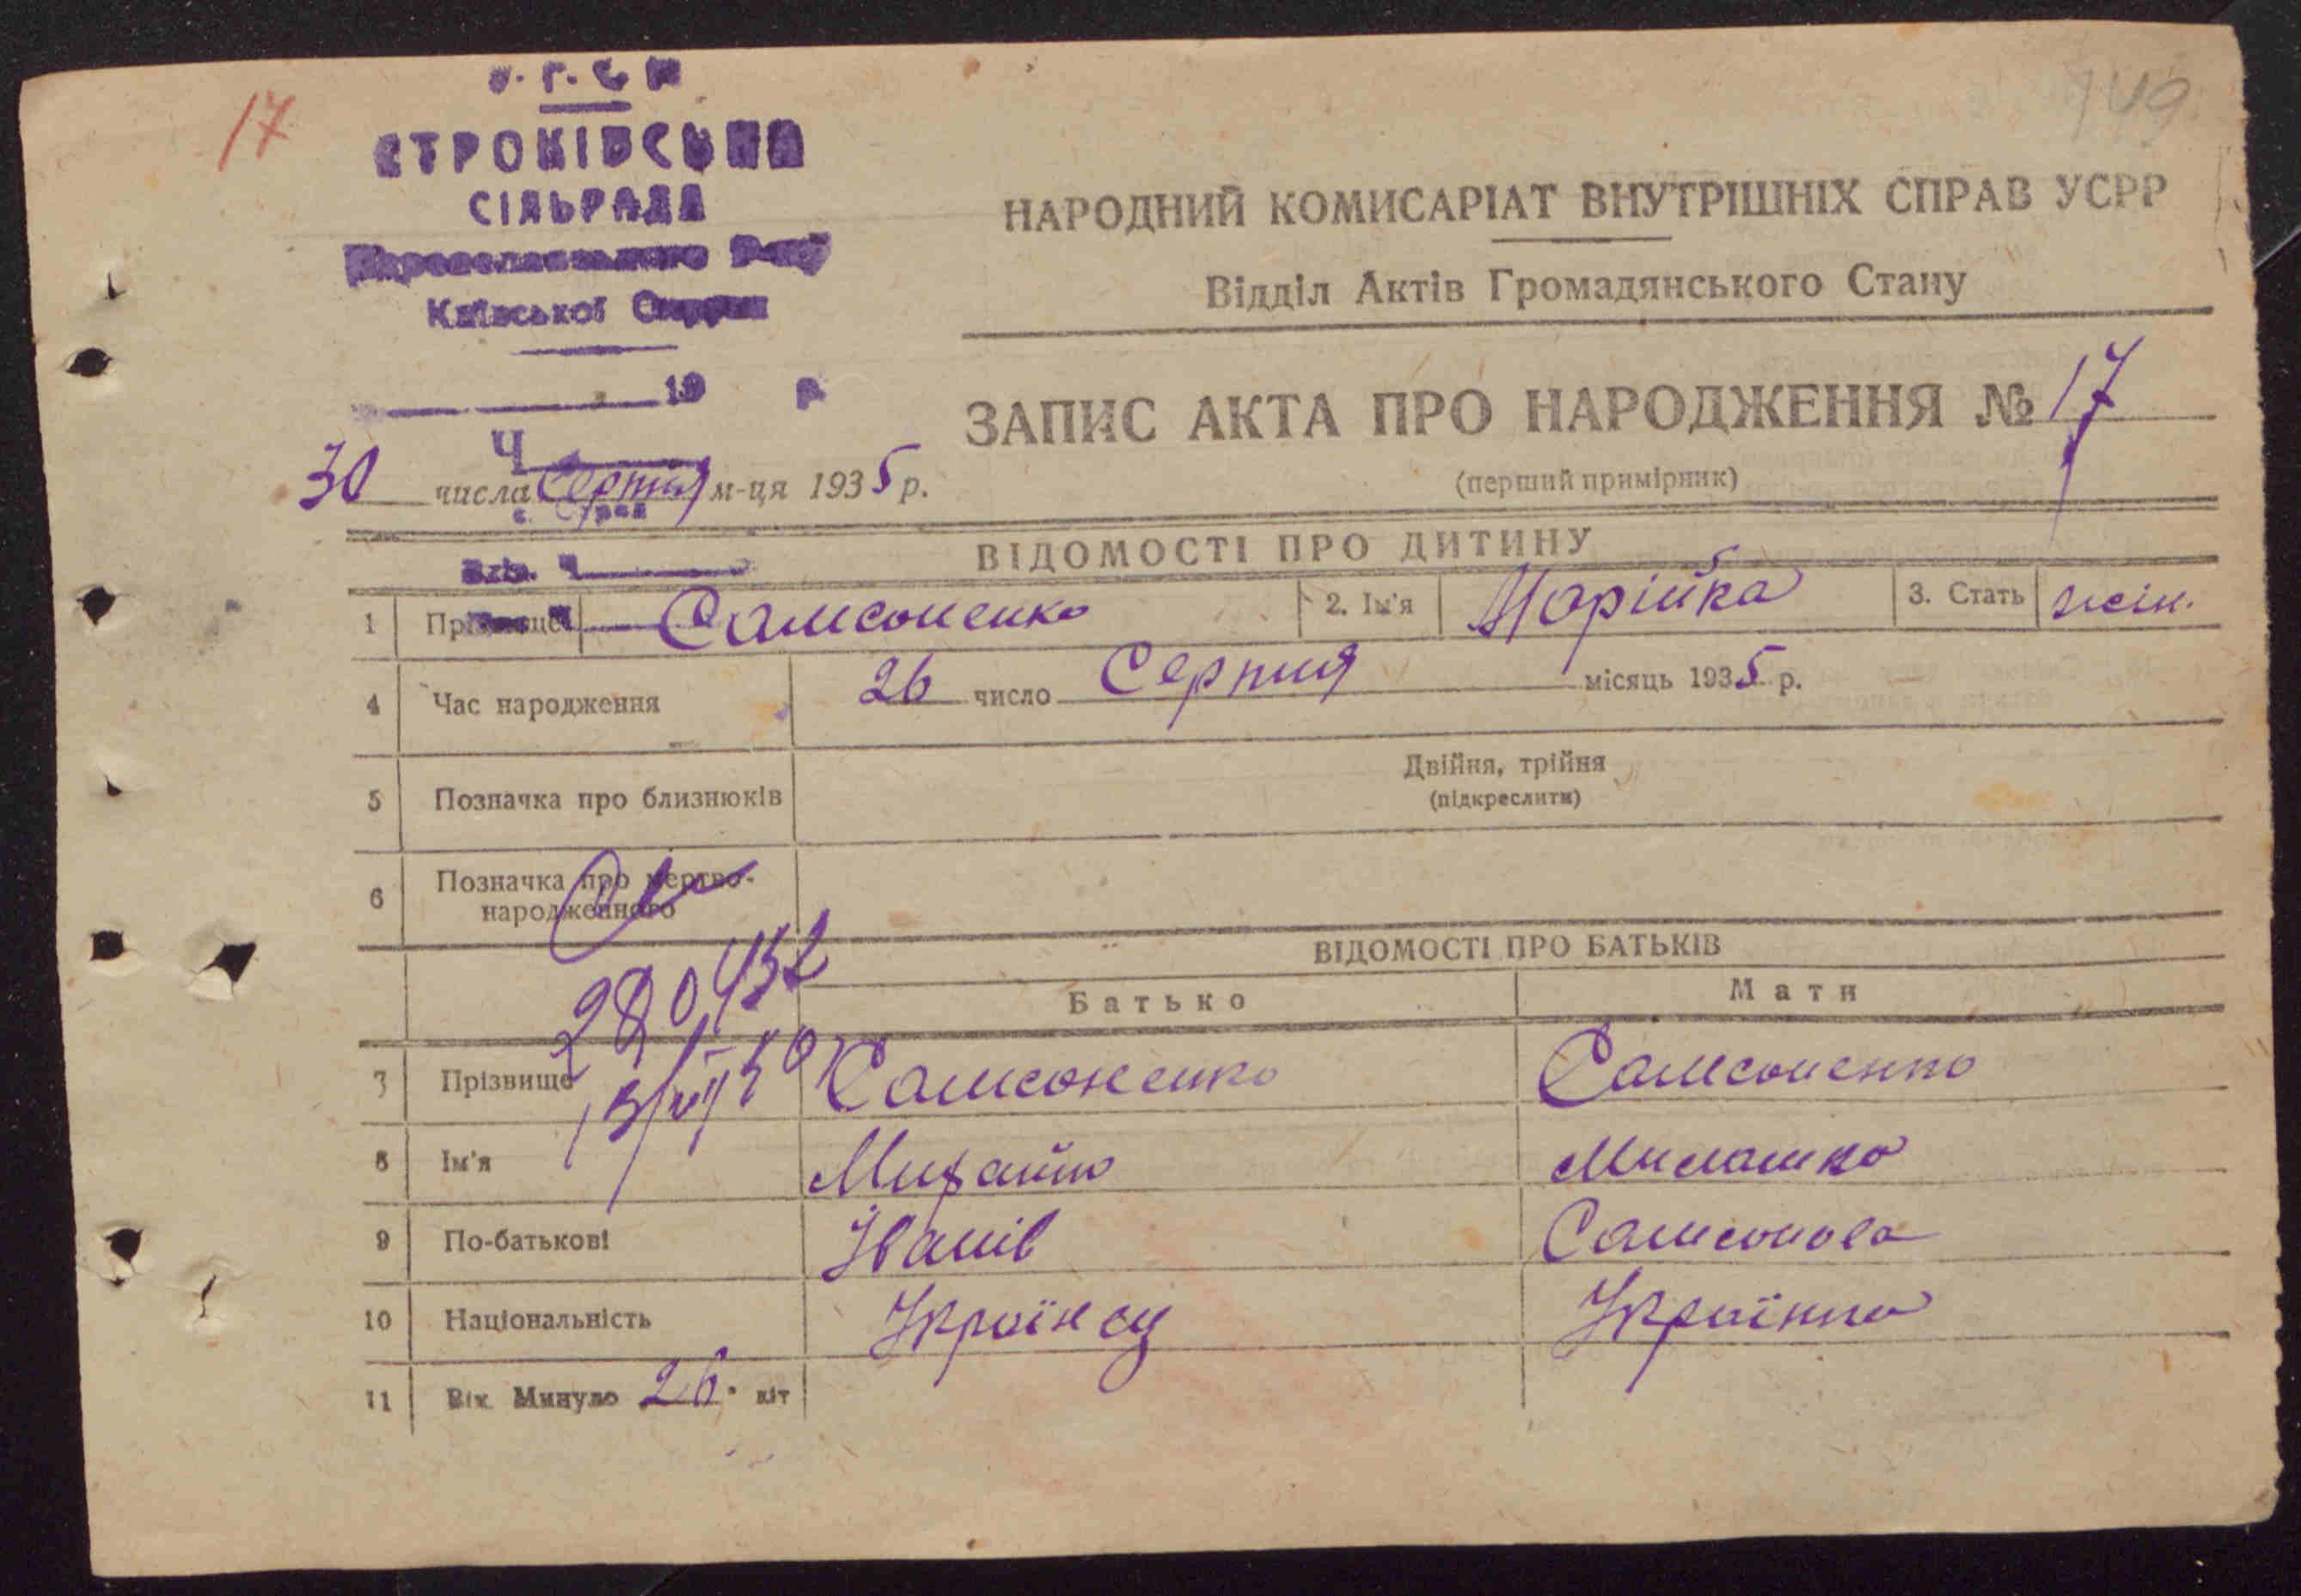 17
149
СТРОКІВСЬКА
СІЛЬРАДА
Р-ну
Київської
19 р.
Ч
НАРОДНИЙ КОМИСАРІАТ ВНУТРІШНІХ СПРАВ УСРР
Відділ Актів Громадянського Стану
ЗАПИС АКТА ПРО НАРОДЖЕННЯ № 17
(перший примірник)
30 числа Серпня м-ця 1935 р.
ВІДОМОСТІ ПРО ДИТИНУ
1 Прізвище Самсоненко 2. Ім'я Марійка 3. Стать жін.
4 Час народження 26 число Серпня місяць 1935 р.
5 Позначка про близнюків Двійня, трійня
(підкреслити)
6 Позначка про мертво-
народженного
ВІДОМОСТІ ПРО БАТЬКІВ
Батько Мати
7 Прізвище Самсоненко Самсоненко
8 Ім'я Михайло Милашка
9 По-батькові Іванів Самсонова
10 Національність Українец Українка
11 Вік Минуло 26 літ